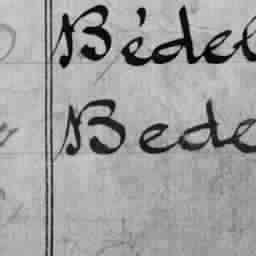 Bédel
Bede